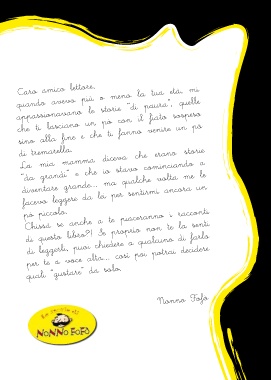 Caro amico lettore,
quando avevo più o meno la tua età, mi
appassionavano le storie "di paura", quelle
che ti lasciano un pò con il fiato sospeso
sino alla fine e che ti fanno venire un pò
di tremarella.
La mia mamma diceva che erano storie
"da grandi" e che io stavo cominciando a
diventare grande... ma qualche volta me le
facevo leggere da lei per sentirmi ancora un
pò piccolo.
Chissà se anche a te piaceranno i racconti
di questo libro?! Se proprio non te la senti
di leggerli, puoi chiedere a qualcuno di farlo
per te a voce alta... così poi potrai decidere
quali "gustare" da solo.
Nonno Fofò
NONNO FOFÒ